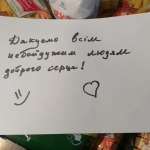 Дякуємо всім
небайдужим людям
доброго серця!